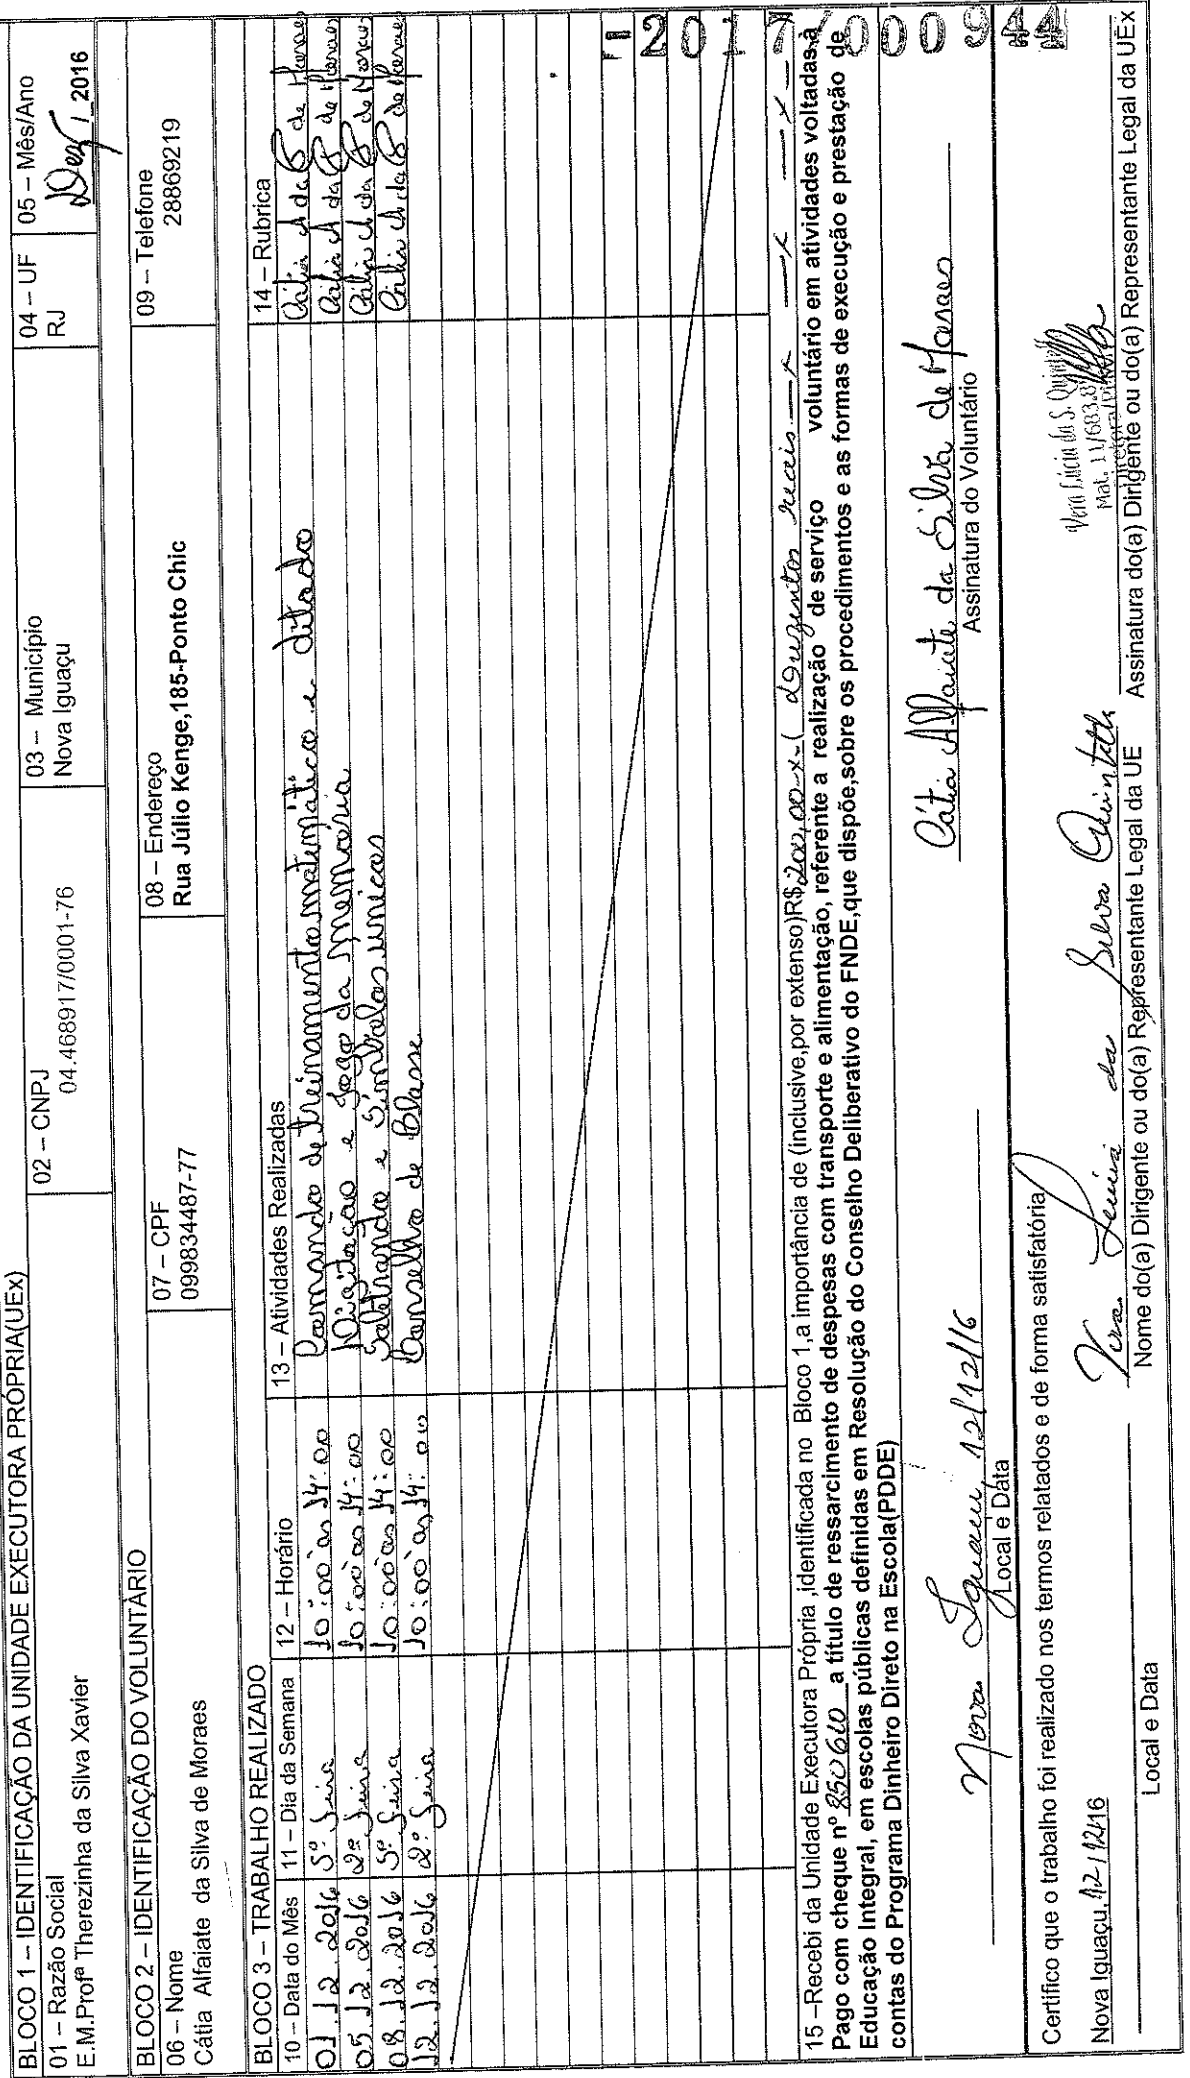 BLOCO 1 – IDENTIFICAÇÃO DA UNIDADE EXECUTORA PRÓPRIA(UEx)
01 – Razão Social
E.M.Profª Therezinha da Silva Xavier
02 – CNPJ
04.468917/0001-76
03 – Município
Nova Iguaçu
04 – UF
RJ
05 – Mês/Ano
Dez / 2016
BLOCO 2 – IDENTIFICAÇÃO DO VOLUNTÁRIO
06 – Nome
Cátia Alfaiate da Silva de Moraes
07 – CPF
099834487-77
08 – Endereço
Rua Júlio Kenge,185-Ponto Chic
09 – Telefone
28869219
BLOCO 3 – TRABALHO REALIZADO
10 – Data do Mês 11 – Dia da Semana 12 – Horário 13 – Atividades Realizadas 14 – Rubrica
01.12.2016 5ª feira 10:00 às 14:00 Comando de treinamento matemático e ditado Cátia A da S de Moraes
05.12.2016 2ª feira 10:00 às 14:00 Digitação e Jogo da memória Cátia A da S de Moraes
08.12.2016 5ª feira 10:00 às 14:00 Soletrando e Símbolos únicos Cátia A da S de Moraes
12.12.2016 2ª feira 10:00 às 14:00 Conselho de Classe Cátia A da S de Moraes
- 2017/000944
15 –Recebi da Unidade Executora Própria ,identificada no Bloco 1,a importância de (inclusive,por extenso)R$ 200,00 -x-( duzentos reais —x —x —x—
Pago com cheque nº 850610 a título de ressarcimento de despesas com transporte e alimentação, referente a realização de serviço voluntário em atividades voltadas à
Educação Integral, em escolas públicas definidas em Resolução do Conselho Deliberativo do FNDE,que dispõe,sobre os procedimentos e as formas de execução e prestação de
contas do Programa Dinheiro Direto na Escola(PDDE)
Nova Iguaçu, 12/12/16
Local e Data
Cátia Alfaiate da Silva de Moraes
Assinatura do Voluntário
Certifico que o trabalho foi realizado nos termos relatados e de forma satisfatória
Nova Iguaçu, 12/12/16
Local e Data
Vera Lúcia da Silva Quintella
Nome do(a) Dirigente ou do(a) Representante Legal da UE
Vera Lúcia da S. Quintella
Mat. 11/683.8
Assinatura do(a) Dirigente ou do(a) Representante Legal da UEx